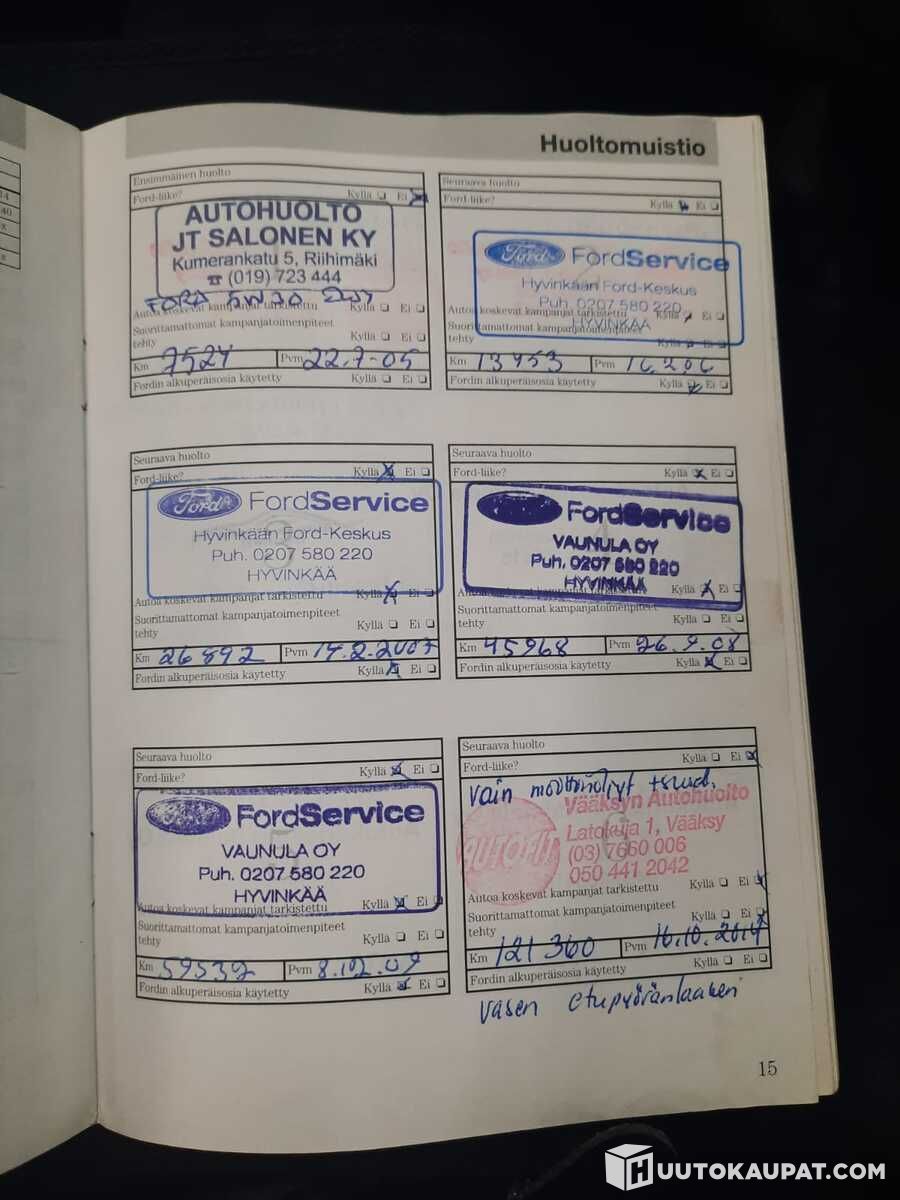 Huoltomuistio
Ensimmäinen huolto
Ford-liike? Kyllä Ei
AUTOHUOLTO
JT SALONEN KY
Kumerankatu 5, Riihimäki
☎ (019) 723 444
FORD 5W30
Autoa koskevat kampanjat tarkistettu Kyllä Ei
Suorittamattomat kampanjatoimenpiteet
tehty Kyllä Ei
Km 7524 Pvm 22.7-05
Fordin alkuperäisosia käytetty Kyllä Ei
Seuraava huolto
Ford-liike? Kyllä Ei
Ford FordService
Hyvinkään Ford-Keskus
Puh. 0207 580 220
HYVINKÄÄ
Autoa koskevat kampanjat tarkistettu Kyllä Ei
Suorittamattomat kampanjatoimenpiteet
tehty Kyllä Ei
Km 13953 Pvm 16.206
Fordin alkuperäisosia käytetty Kyllä Ei
Seuraava huolto
Ford-liike? Kyllä Ei
Ford FordService
Hyvinkään Ford-Keskus
Puh. 0207 580 220
HYVINKÄÄ
Autoa koskevat kampanjat tarkistettu Kyllä Ei
Suorittamattomat kampanjatoimenpiteet
tehty Kyllä Ei
Km 26892 Pvm 14.2.2007
Fordin alkuperäisosia käytetty Kyllä Ei
Seuraava huolto
Ford-liike? Kyllä Ei
FordService
VAUNULA OY
Puh. 0207 580 220
HYVINKÄÄ
Autoa koskevat kampanjat tarkistettu Kyllä Ei
Suorittamattomat kampanjatoimenpiteet
tehty Kyllä Ei
Km 45968 Pvm 26.9.08
Fordin alkuperäisosia käytetty Kyllä Ei
Seuraava huolto
Ford-liike? Kyllä Ei
Ford FordService
VAUNULA OY
Puh. 0207 580 220
HYVINKÄÄ
Autoa koskevat kampanjat tarkistettu Kyllä Ei
Suorittamattomat kampanjatoimenpiteet
tehty Kyllä Ei
Km 59532 Pvm 8.12.09
Fordin alkuperäisosia käytetty Kyllä Ei
Seuraava huolto
Ford-liike? Kyllä Ei
Vain moottoriöljyt + suod.
Vääksyn Autohuolto
AUTOFIT
Latokuja 1, Vääksy
(03) 7660 006
050 441 2042
Autoa koskevat kampanjat tarkistettu Kyllä Ei
Suorittamattomat kampanjatoimenpiteet
tehty Kyllä Ei
Km 121 360 Pvm 16.10.2014
Fordin alkuperäisosia käytetty Kyllä Ei
Vasen etupyöränlaakeri
15
HUUTOKAUPAT.COM